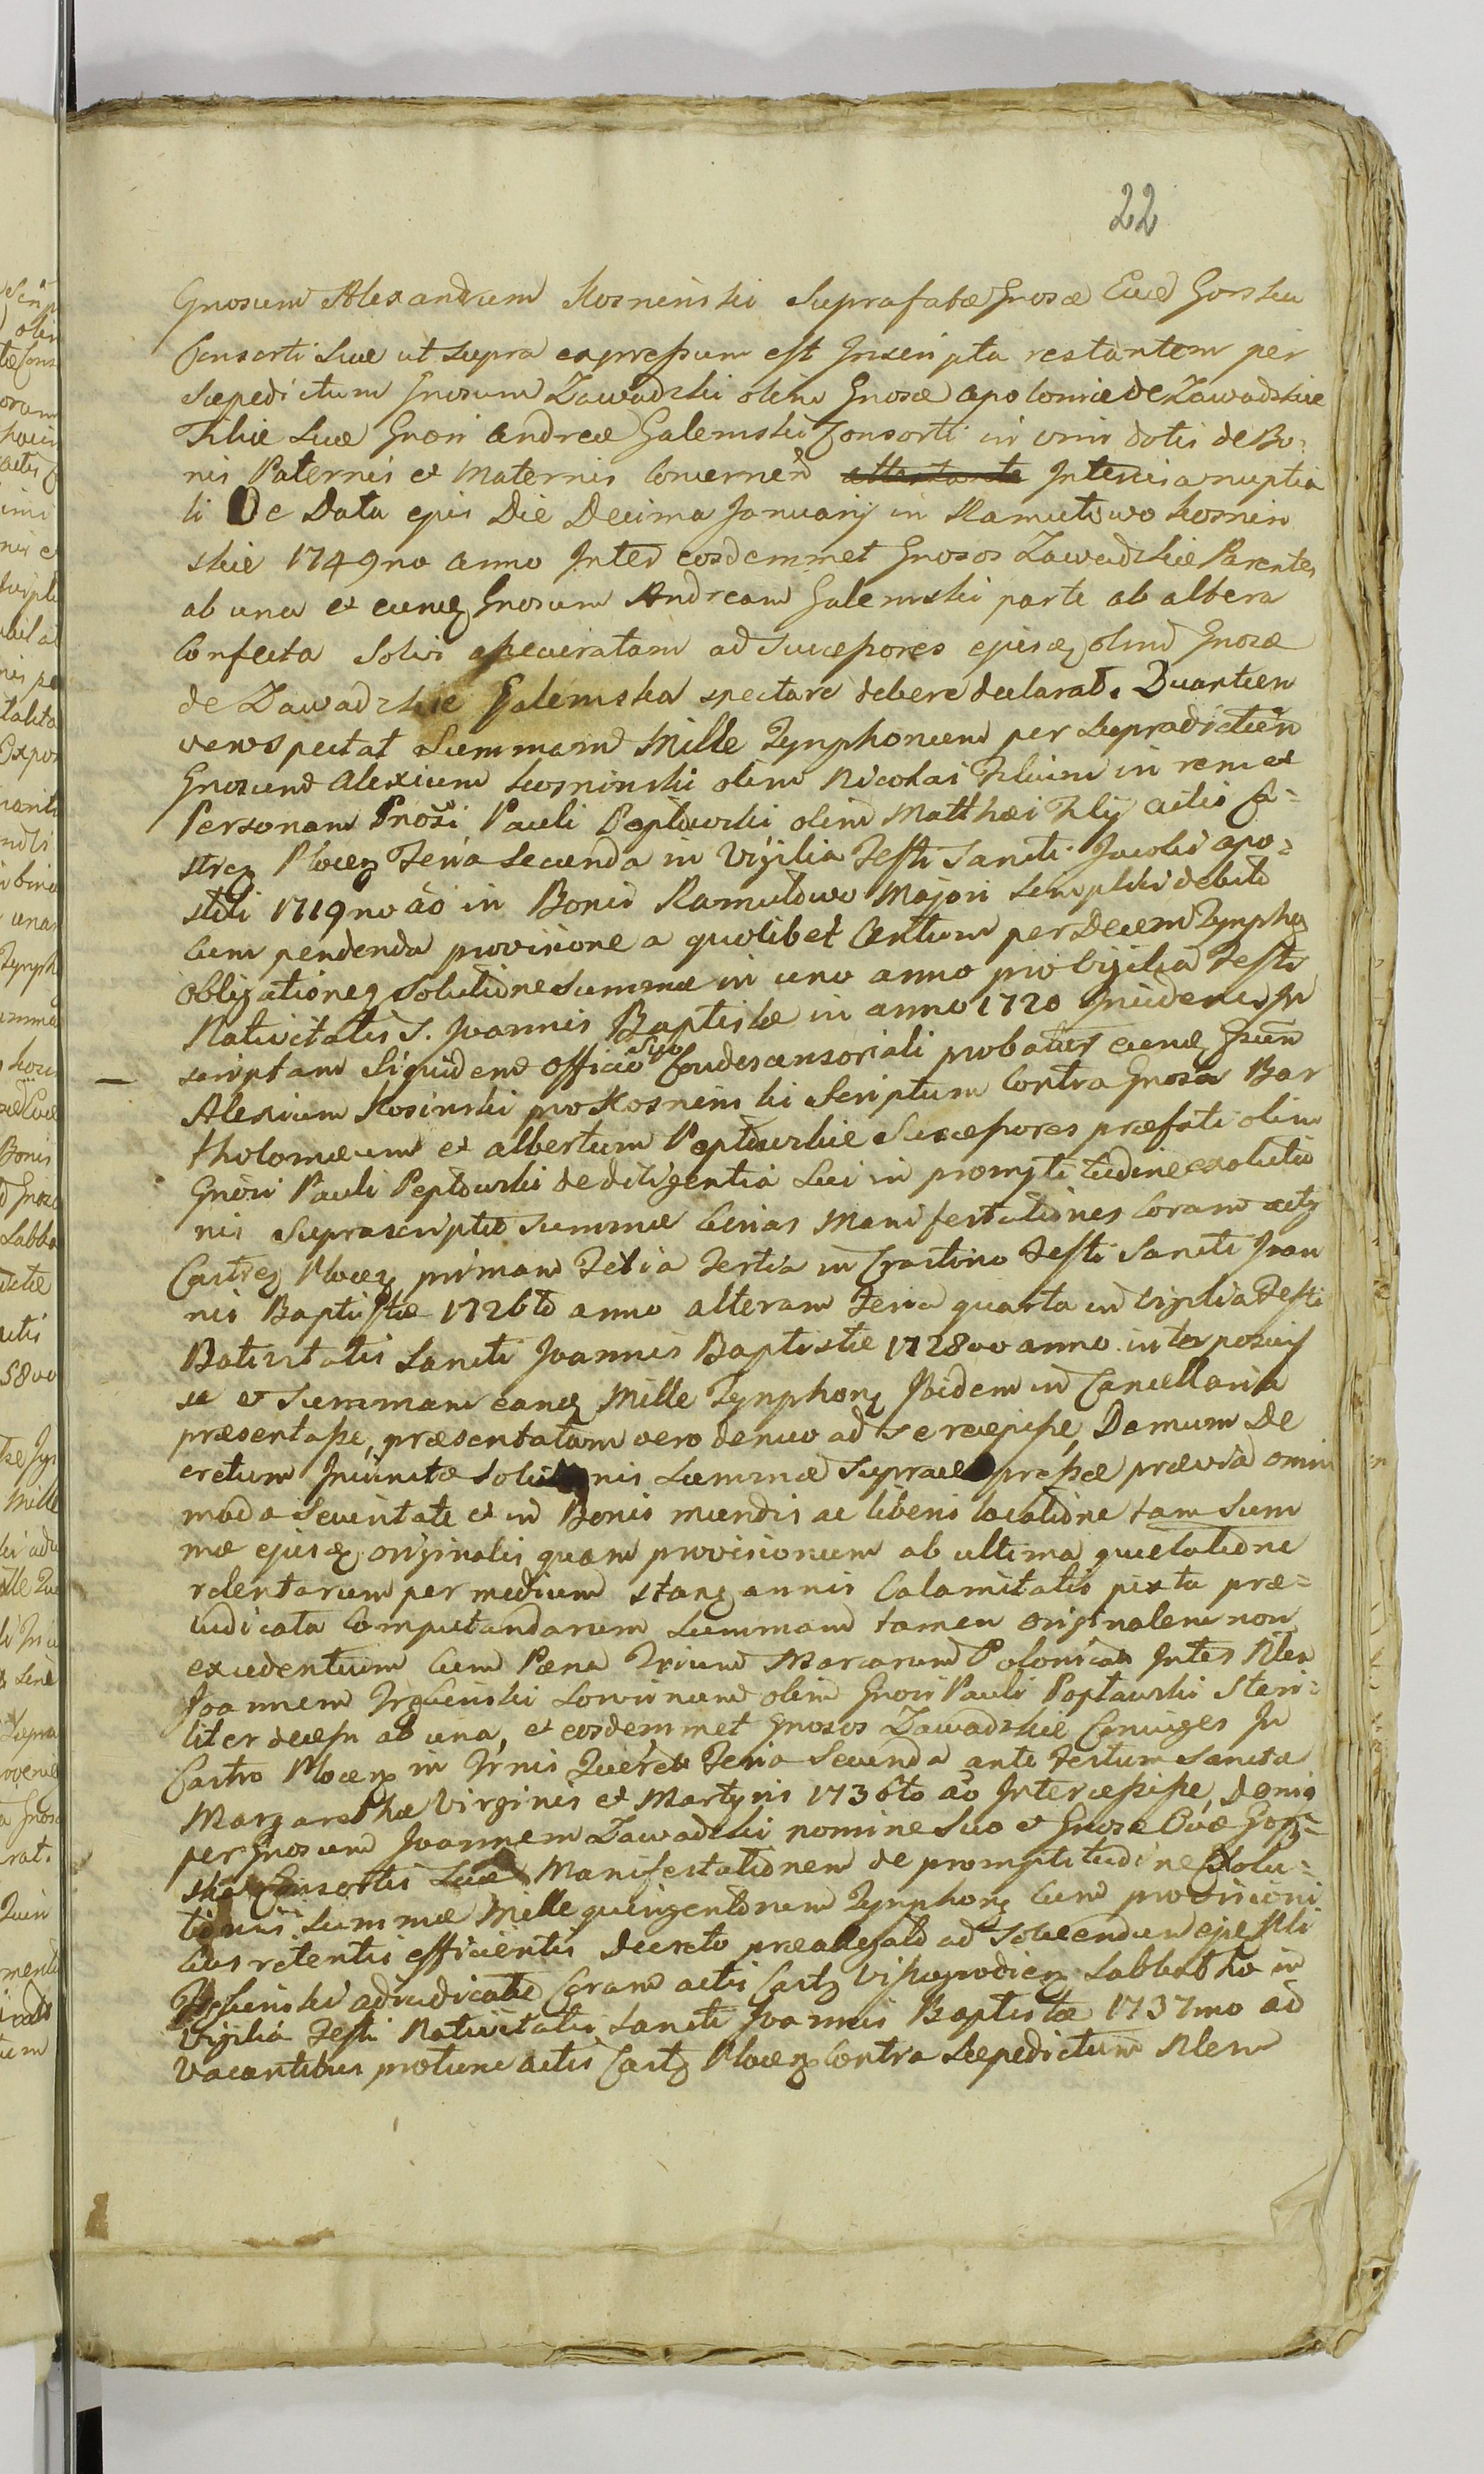 22
Gnosum Alexandrum Kosninski Suprafatæ Gnosæ Evæ Gorska
Consorti Suæ ut supra expressum est Inscripta restantem per
Sæpedictum Gnosum Zawadzki olim Gnosæ Apoloniæ de Zawadzkie
Filiæ Suæ Gnori Andreæ Galemski Consorti in vim dotis de Bo:
nis Paternis et Maternis Concernen Intercisa nuptia
li De Data ejus Die Decima January in Ramutowo Kosnin
skie 1749no anno Inter eosdemmet Gnosos Zawadzkie Parentes
ab una et eumq Gnosum Andream Galemski parte ab altera
Confecta Solvi assecuratam ad Successores ejusq olim Gnosæ
de Zawadzkie Galemska spectare debere declarat. Quantum
vero spectat Summam Mille Tynphonum per Supradictum
Gnosum Alexium Kosninski olim Nicolai Filium in rem et
Personam Gnosi Pauli Peptowski olim Matthæi Filij actis Ca=
strq Plocen Feria Secunda in Vigilia Festi Sancti Jacobi Apo=
stoli 1719no ao in Bonis Ramutowo Majori Simplici debito
Cum pendenda provisione a quolibet Centum per Decem Tynphos
Obligationeq Solutione Summæ in uno anno pro Vigilia Festi
Nativitatis S. Joannis Baptistæ in anno 1720 Incidenti In
scriptam Siquidem Officio Suo Condescensoriali probatur eumq Gsum
Alexium Kosinski pro Kosninski Scriptum Contra Gnosos Bar
tholomæum et Albertum Peptowskie Successores præfati olim
Gnosi Pauli Peptowski de diligentia Sui in promptitudine exolutio
nis Suprascriptæ Summæ binas Manifestationes Coram actis
Castrq Plocen primam Feria Tertia in Crastino Festi Sancti Joan
nis Baptistæ 1726to anno alteram Feria quarta in Vigilia Festi
Nativitatis Sancti Joannis Baptistæ 1728vo anno interposuis
se et Summam eamq Mille Tynphonq Ibidem in Cancellaria
præsentasse, præsentatam vero denuo ad se recepisse, Demum De
cretum Injunctæ Solutionis Summæ Supraexpressæ prævia omni
moda Securitate et in Bonis mundis ac liberis locatione tam Sum
mæ ejusq originalis quam provisionum ab ultima quietatione
retentarum per medium stanq annis Calamitatis juxta præ=
iudicata Computandarum Summam tamen originalem non
excedentium Cum Pæna Trium Marcarum Polonicar Inter Rlem
Joannem Sororinum olim Gnosi Pauli Peptowski Steri=
liter decessi ab una, et eosdemmet Gnosos Zawadzkie Conjuges In
Castro Plocen in Trnis Feria Secunda ante Festum Sanctæ
Margarethæ Virginis et Martyris 1736to ao Intercessisse, deniq
per Gnosum Joannem Zawadzki nomine Suo et Gnosæ Evæ Gor=
ska Consortis Suæ Manifestationem de promptitudine Exolu=
tionis Summæ Mille quingentorum Tynphonq Cum provisioni
bus retentis efficientis Decreto præallegato ad Solvendum ejq Rli
adjudicatæ Coram actis Castq Vissogrodien Sabbatho in
Vigilia Festi Nativitatis Sancti Joannis Baptistæ 1737mo ao
Vacantibus protunc actis Castq Plocen Contra Sæpedictum Rlem